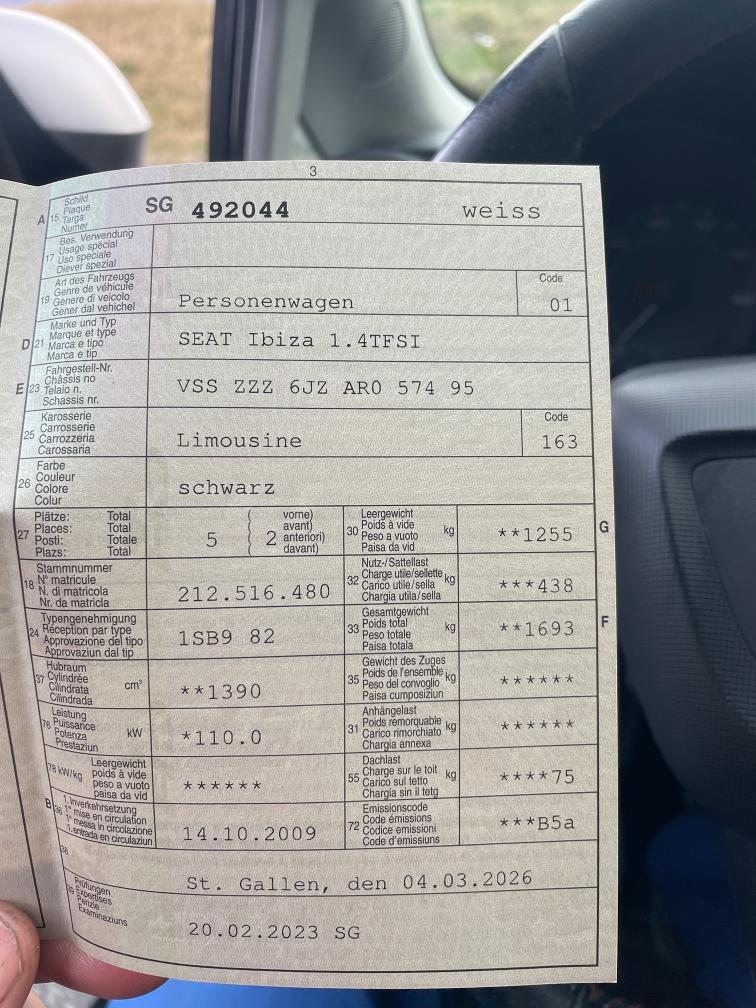 3
A 15 Schild
Plaque
Targa
Numer
SG 492044 weiss
17 Bes. Verwendung
Usage spécial
Uso speciale
Diever spezial
19 Art des Fahrzeugs
Genre de véhicule
Genere di veicolo
Gener dal vehichel
Personenwagen
Code
01
D 21 Marke und Typ
Marque et type
Marca e tipo
Marca e tip
SEAT Ibiza 1.4TFSI
E 23 Fahrgestell-Nr.
Châssis no
Telaio n.
Schassis nr.
VSS ZZZ 6JZ AR0 574 95
25 Karosserie
Carrosserie
Carrozzeria
Carossaria
Limousine
Code
163
26 Farbe
Couleur
Colore
Colur
schwarz
27 Plätze: Total
Places: Total
Posti: Totale
Plazs: Total
5 ( 2 vorne)
avant)
anteriori)
davant)
30 Leergewicht
Poids à vide
Peso a vuoto
Paisa da vid
kg
**1255
G
18 Stammnummer
N° matricule
N. di matricola
Nr. da matricla
212.516.480
32 Nutz-/Sattellast
Charge utile/sellette
Carico utile/sella
Chargia utila/sella
kg
***438
24 Typengenehmigung
Réception par type
Approvazione del tipo
Approvaziun dal tip
1SB9 82
33 Gesamtgewicht
Poids total
Peso totale
Paisa totala
kg
**1693
F
37 Hubraum
Cylindrée
Cilindrata
Cilindrada
cm³
**1390
35 Gewicht des Zuges
Poids de l'ensemble
Peso del convoglio
Paisa cumposiziun
kg
******
76 Leistung
Puissance
Potenza
Prestaziun
kW
*110.0
31 Anhängelast
Poids remorquable
Carico rimorchiato
Chargia annexa
kg
******
78 kW/kg Leergewicht
poids à vide
peso a vuoto
paisa da vid
******
55 Dachlast
Charge sur le toit
Carico sul tetto
Chargia sin il tetg
kg
****75
B 36 1. Inverkehrsetzung
1re mise en circulation
1a messa in circolazione
1. entrada en circulaziun
14.10.2009
72 Emissionscode
Code émissions
Codice emissioni
Code d'emissiuns
***B5a
38
St. Gallen, den 04.03.2026
39 Prüfungen
Expertises
Perizie
Examinaziuns
20.02.2023 SG